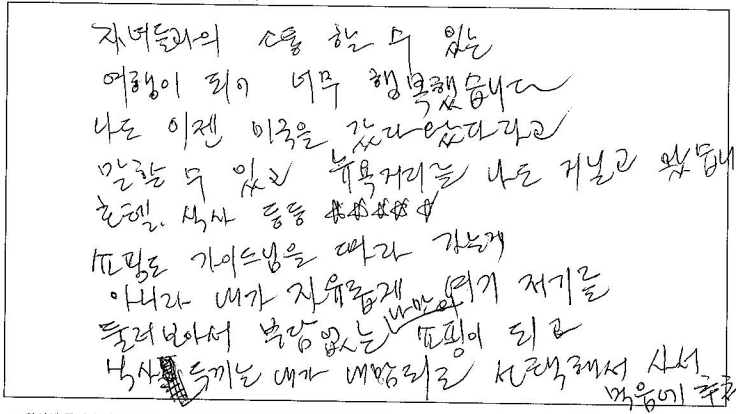 자녀들과의 소통 할 수 있는
여행이 되어 너무 행복했습니다
나도 이젠 미국을 갔다왔다라고
말할 수 있고 뉴욕거리를 나도 거닐고 왔습니
호텔. 식사 등등 ☆☆☆☆☆
쇼핑도 가이드님을 따라 가는게
아니라 내가 자유롭게 여기 저기를
둘러보아서 부담없는 나만의 쇼핑이 되고
식사 두끼는 내가 내맘되로 선택해서 사서
먹음에